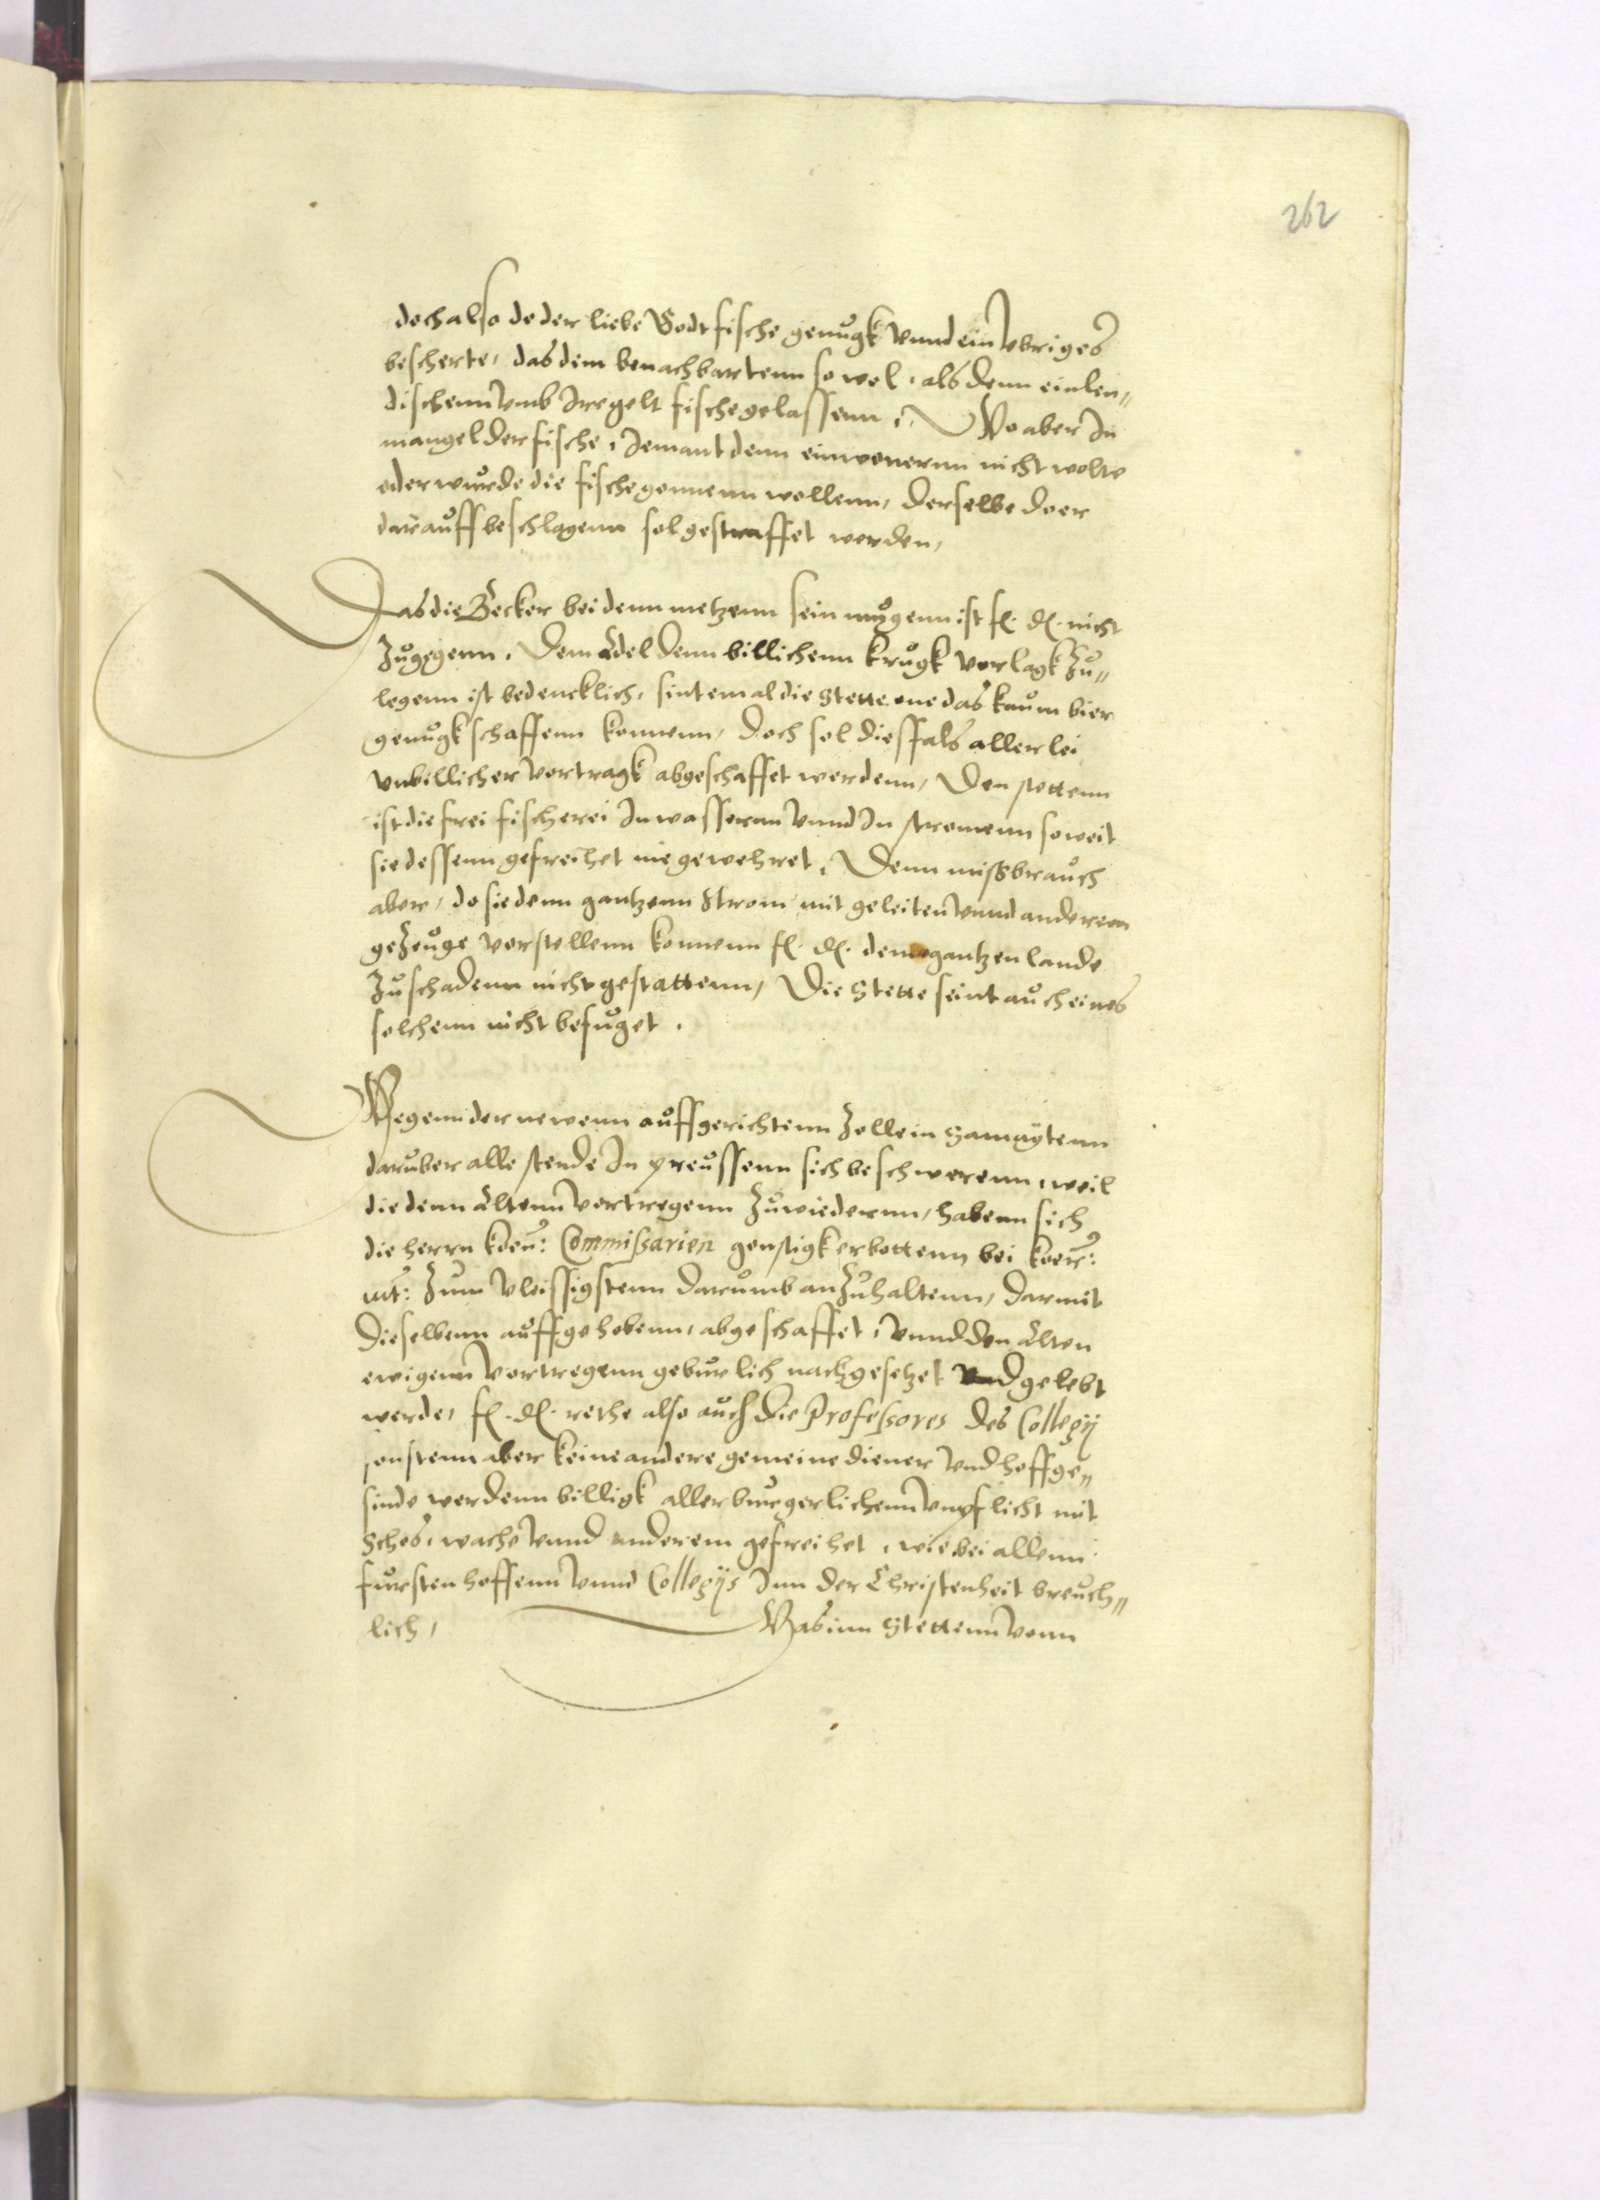 262
doch also do der liebe Godt fische genugk vnnd ein vbriges
bescherte, das dem benachbartenn so wol, als denn einlen„
dischenn vmb Ire gelt fische gelassenn, Wo aber In
mangel der fische, Jemant denn einwonernn nicht wolte
oder wurde die fische gonnenn wollenn, derselbe do er
darauff beschlagenn sol gestraffet werden,
Das die Becker bei denn metzenn sein mugenn ist f. d. nicht
zugegenn. Dem Adel denn billichenn krugk vorlagk zu„
legenn ist bedencklich, sintemal die Stette one das kaum bier
genugk schaffenn konnenn, doch sol diesfals allerlei
vnbillicher vortragk abgeschaffet werdenn, Den stettenn
ist die frei fischerei In wassernn vnnd In stromenn soweit
sie dessenn gefreihet nie gewehret, Denn missbrauch
aber, do sie denn gantzenn Strom mit geleiten vnnd anderem
gezeuge vorstellenn konnenn f. d. dem gantzen lande
zu schadenn nicht gestattenn, Die Stette seint auch eines
solchenn nicht befuget.
Wegenn der newenn auffgerichtenn Zolle in Samaytenn
daruber alle stende In preussenn sich beschwerenn, weil
die denn Altenn vortregenn zuwiedernn, habenn sich
die herrn koen: Commissarien gonstigk erbottenn bei koer:
mt: zum vleissigstenn darumb anzuhaltenn, darmit
dieselbenn auffgehobenn, abgeschaffet, vnnd den Alten
ewigenn vortregenn geburlich nachgesetzet vnd gelebt
werde, f. d. rethe also auch die Professores des Collegij
sonstenn aber keine andere gemeine diener vnd hoffge„
sinde werdenn billigk aller burgerlichenn vnpflicht mit
Schos, wache vnnd anderem gefreihet, wie bei allenn
furstenhoffenn vnnd Collegijs Inn der Christenheit breuch„
lich, Was inn Stettenn vonn